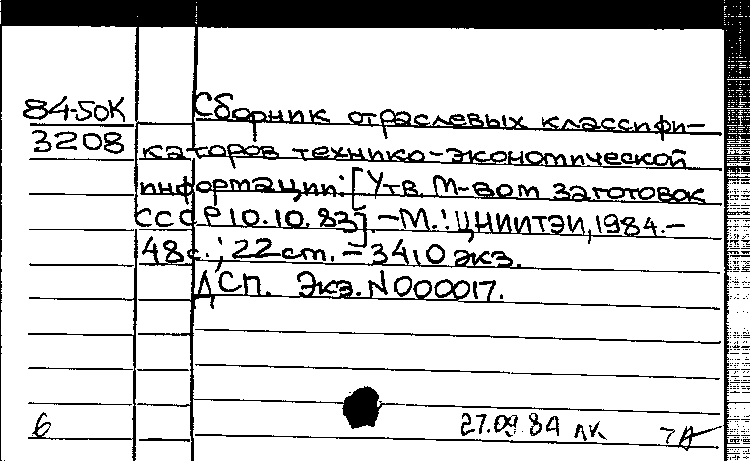 84-50К Сборник отраслевых классифи-
3208 каторов технико-экономической
информации: [Утв. М-вом заготовок
СССР 10.10.83]. - М.: ЦНИИТЭИ, 1984. -
48 с.; 22 см. - 3410 экз.
ДСП. Экз. N 000017.
6 27.09.84 лк